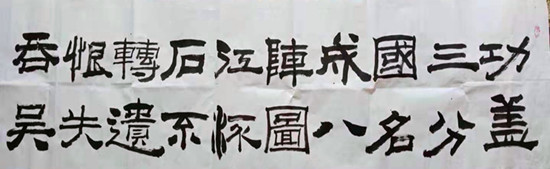 功盖
三分
國名
成八
陣圖
江流
石不
轉遺
恨失
吞吴